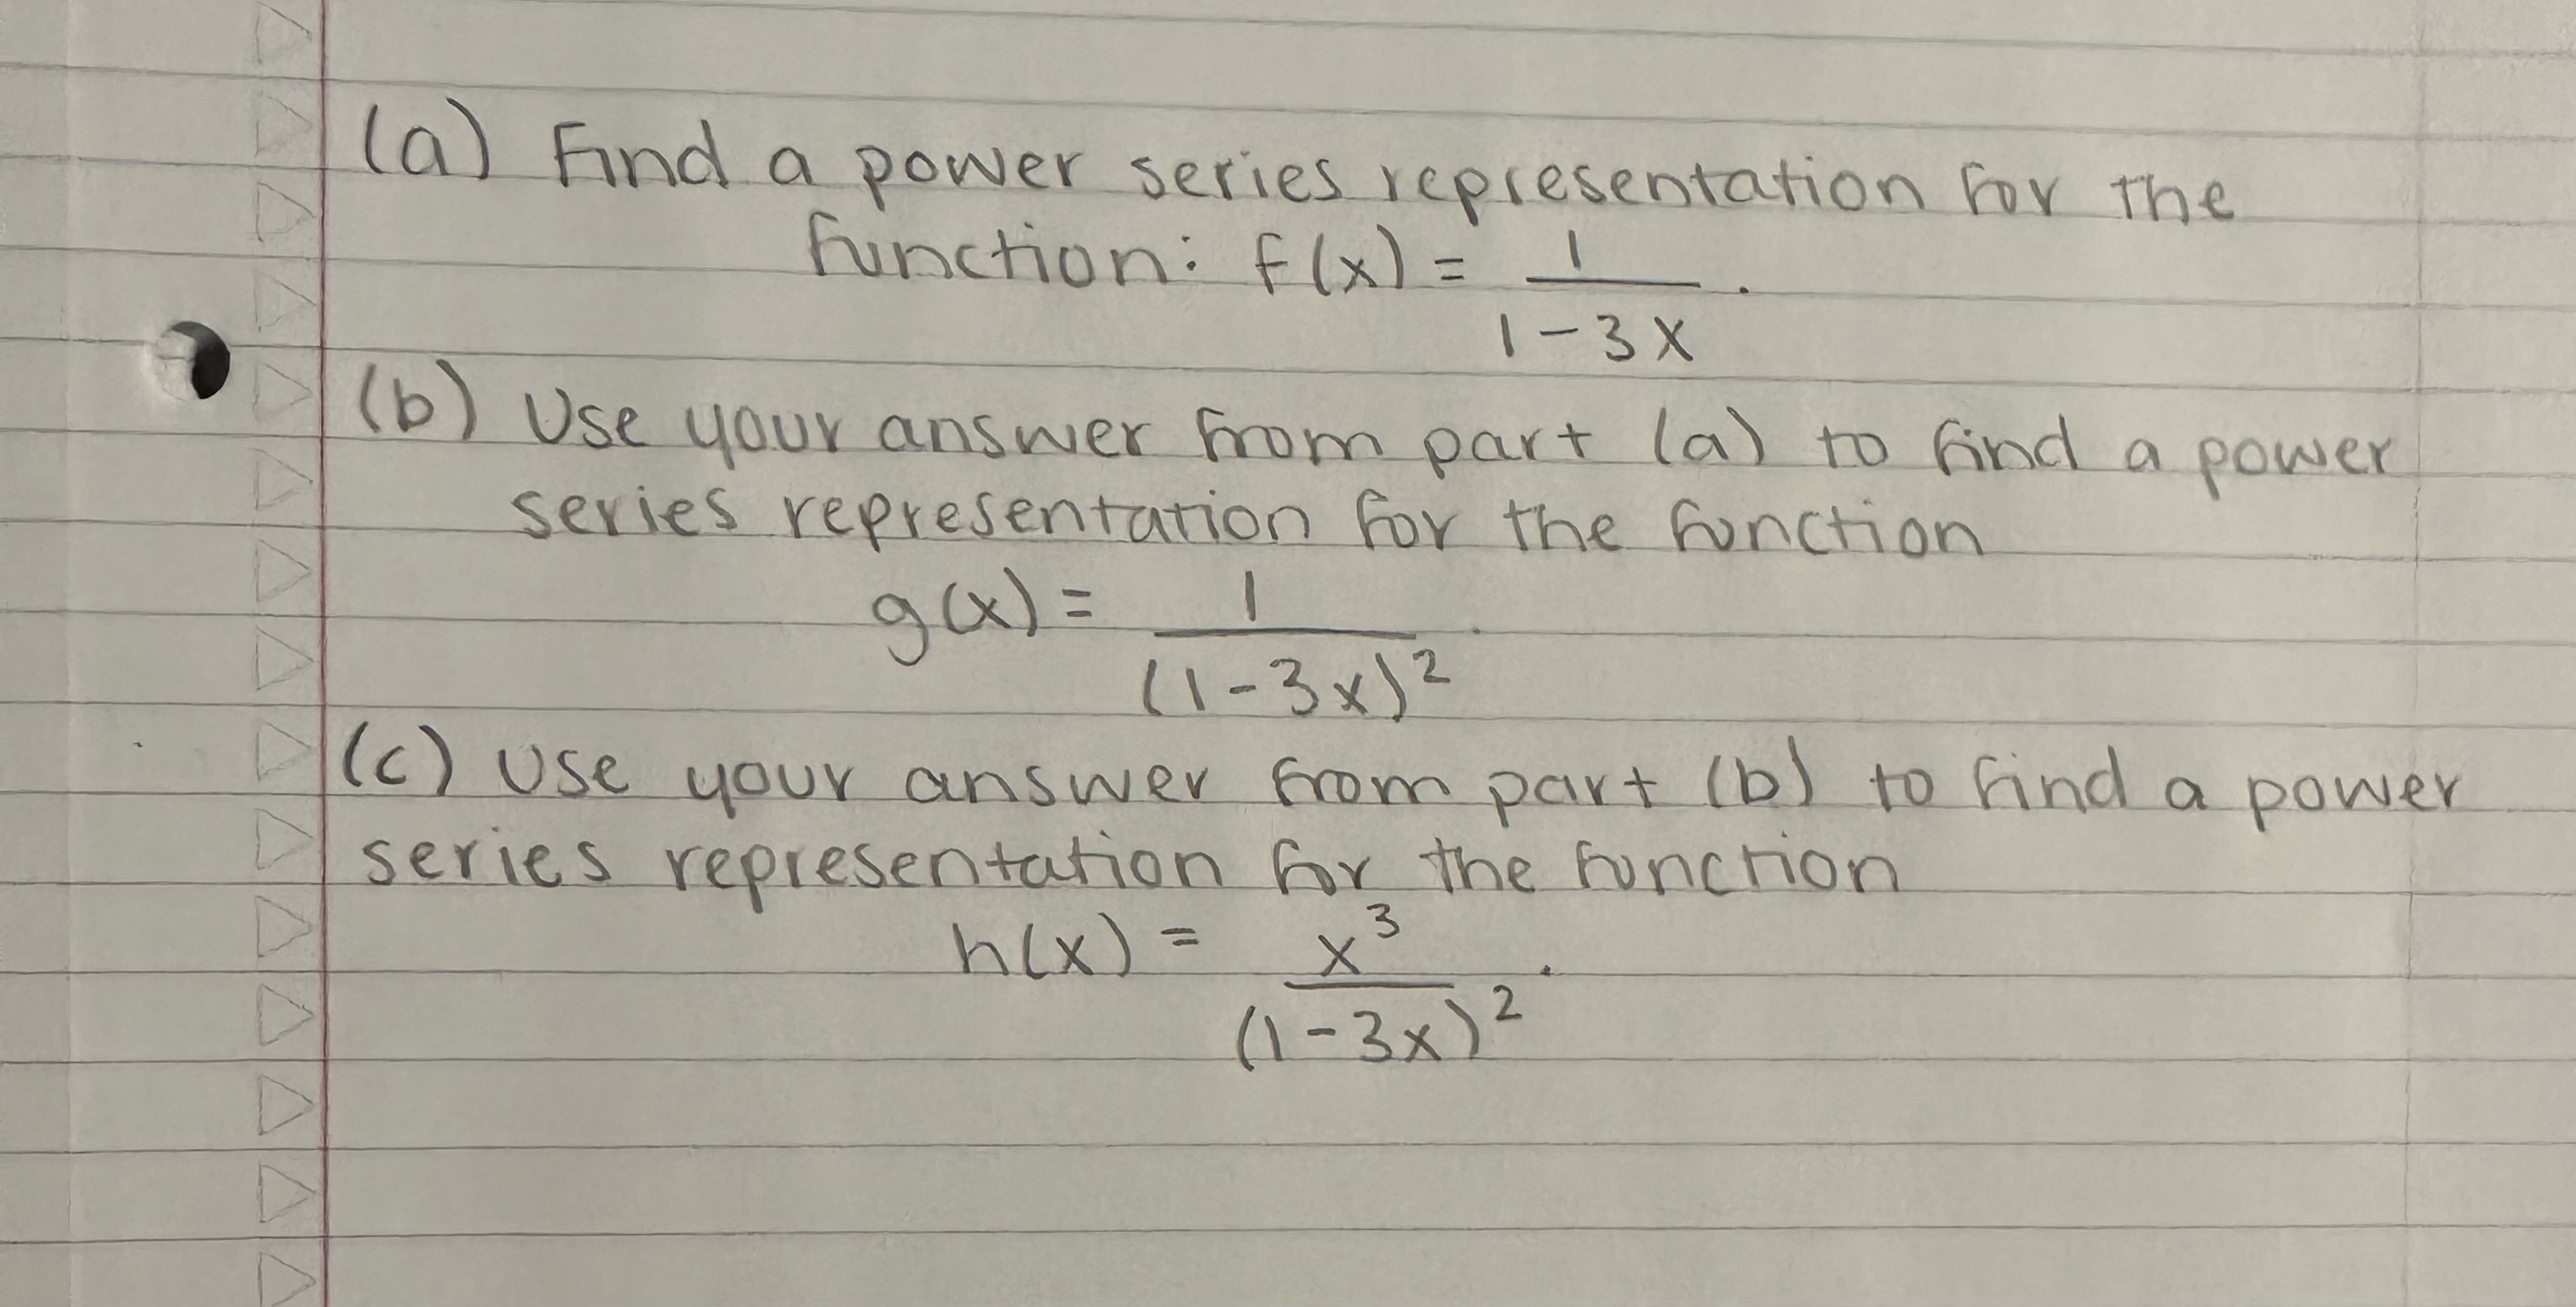 (a) Find a power series representation for the
function: f(x) = 1/(1-3x).
(b) Use your answer from part (a) to find a power
series representation for the function
g(x) = 1/(1-3x)².
(c) Use your answer from part (b) to find a power
series representation for the function
h(x) = x³/(1-3x)².